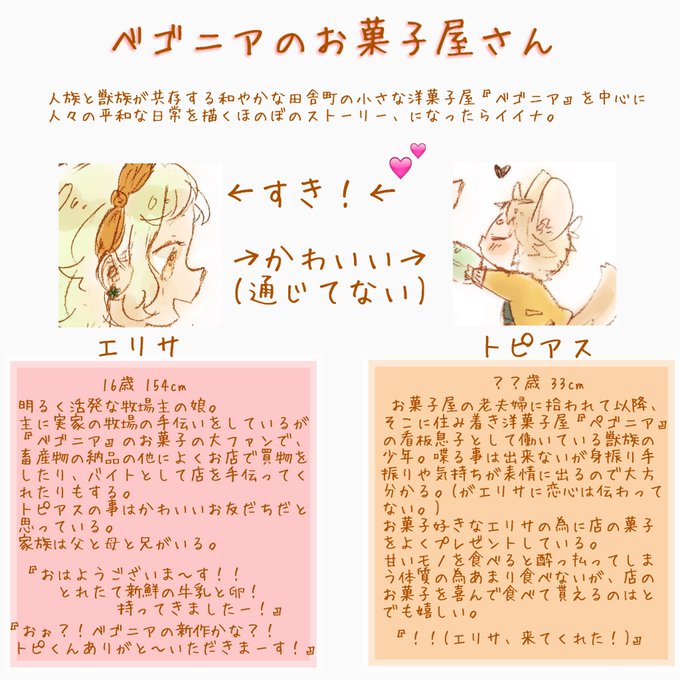 ベゴニアのお菓子屋さん
人族と獣族が共存する和やかな田舎町の小さな洋菓子屋『ベゴニア』を中心に
人々の平和な日常を描くほのぼのストーリー、になったらイイナ。
←すき！←
→かわいい→
(通じてない)
エリサ
16歳 154cm
明るく活発な牧場主の娘。
主に実家の牧場の手伝いをしているが
『ベゴニア』のお菓子の大ファンで、
畜産物の納品の他によくお店で買物を
したり、バイトとして店を手伝ってく
れたりもする。
トピアスの事はかわいいお友だちだと
思っている。
家族は父と母と兄がいる。
『おはようございま〜す！！
とれたて新鮮の牛乳と卵！
持ってきましたー！』
『おぉ？！ベゴニアの新作かな？！
トピくんありがと〜いただきまーす！』
トピアス
？？歳 33cm
お菓子屋の老夫婦に拾われて以降、
そこに住み着き洋菓子屋『ベゴニア』
の看板息子として働いている獣族の
少年。喋る事は出来ないが身振り手
振りや気持ちが表情に出るので大方
分かる。(がエリサに恋心は伝わって
ない。)
お菓子好きなエリサの為に店の菓子
をよくプレゼントしている。
甘いモノを食べると酔っ払ってしま
う体質の為あまり食べないが、店の
お菓子を喜んで食べて貰えるのはと
ても嬉しい。
『！！(エリサ、来てくれた！)』